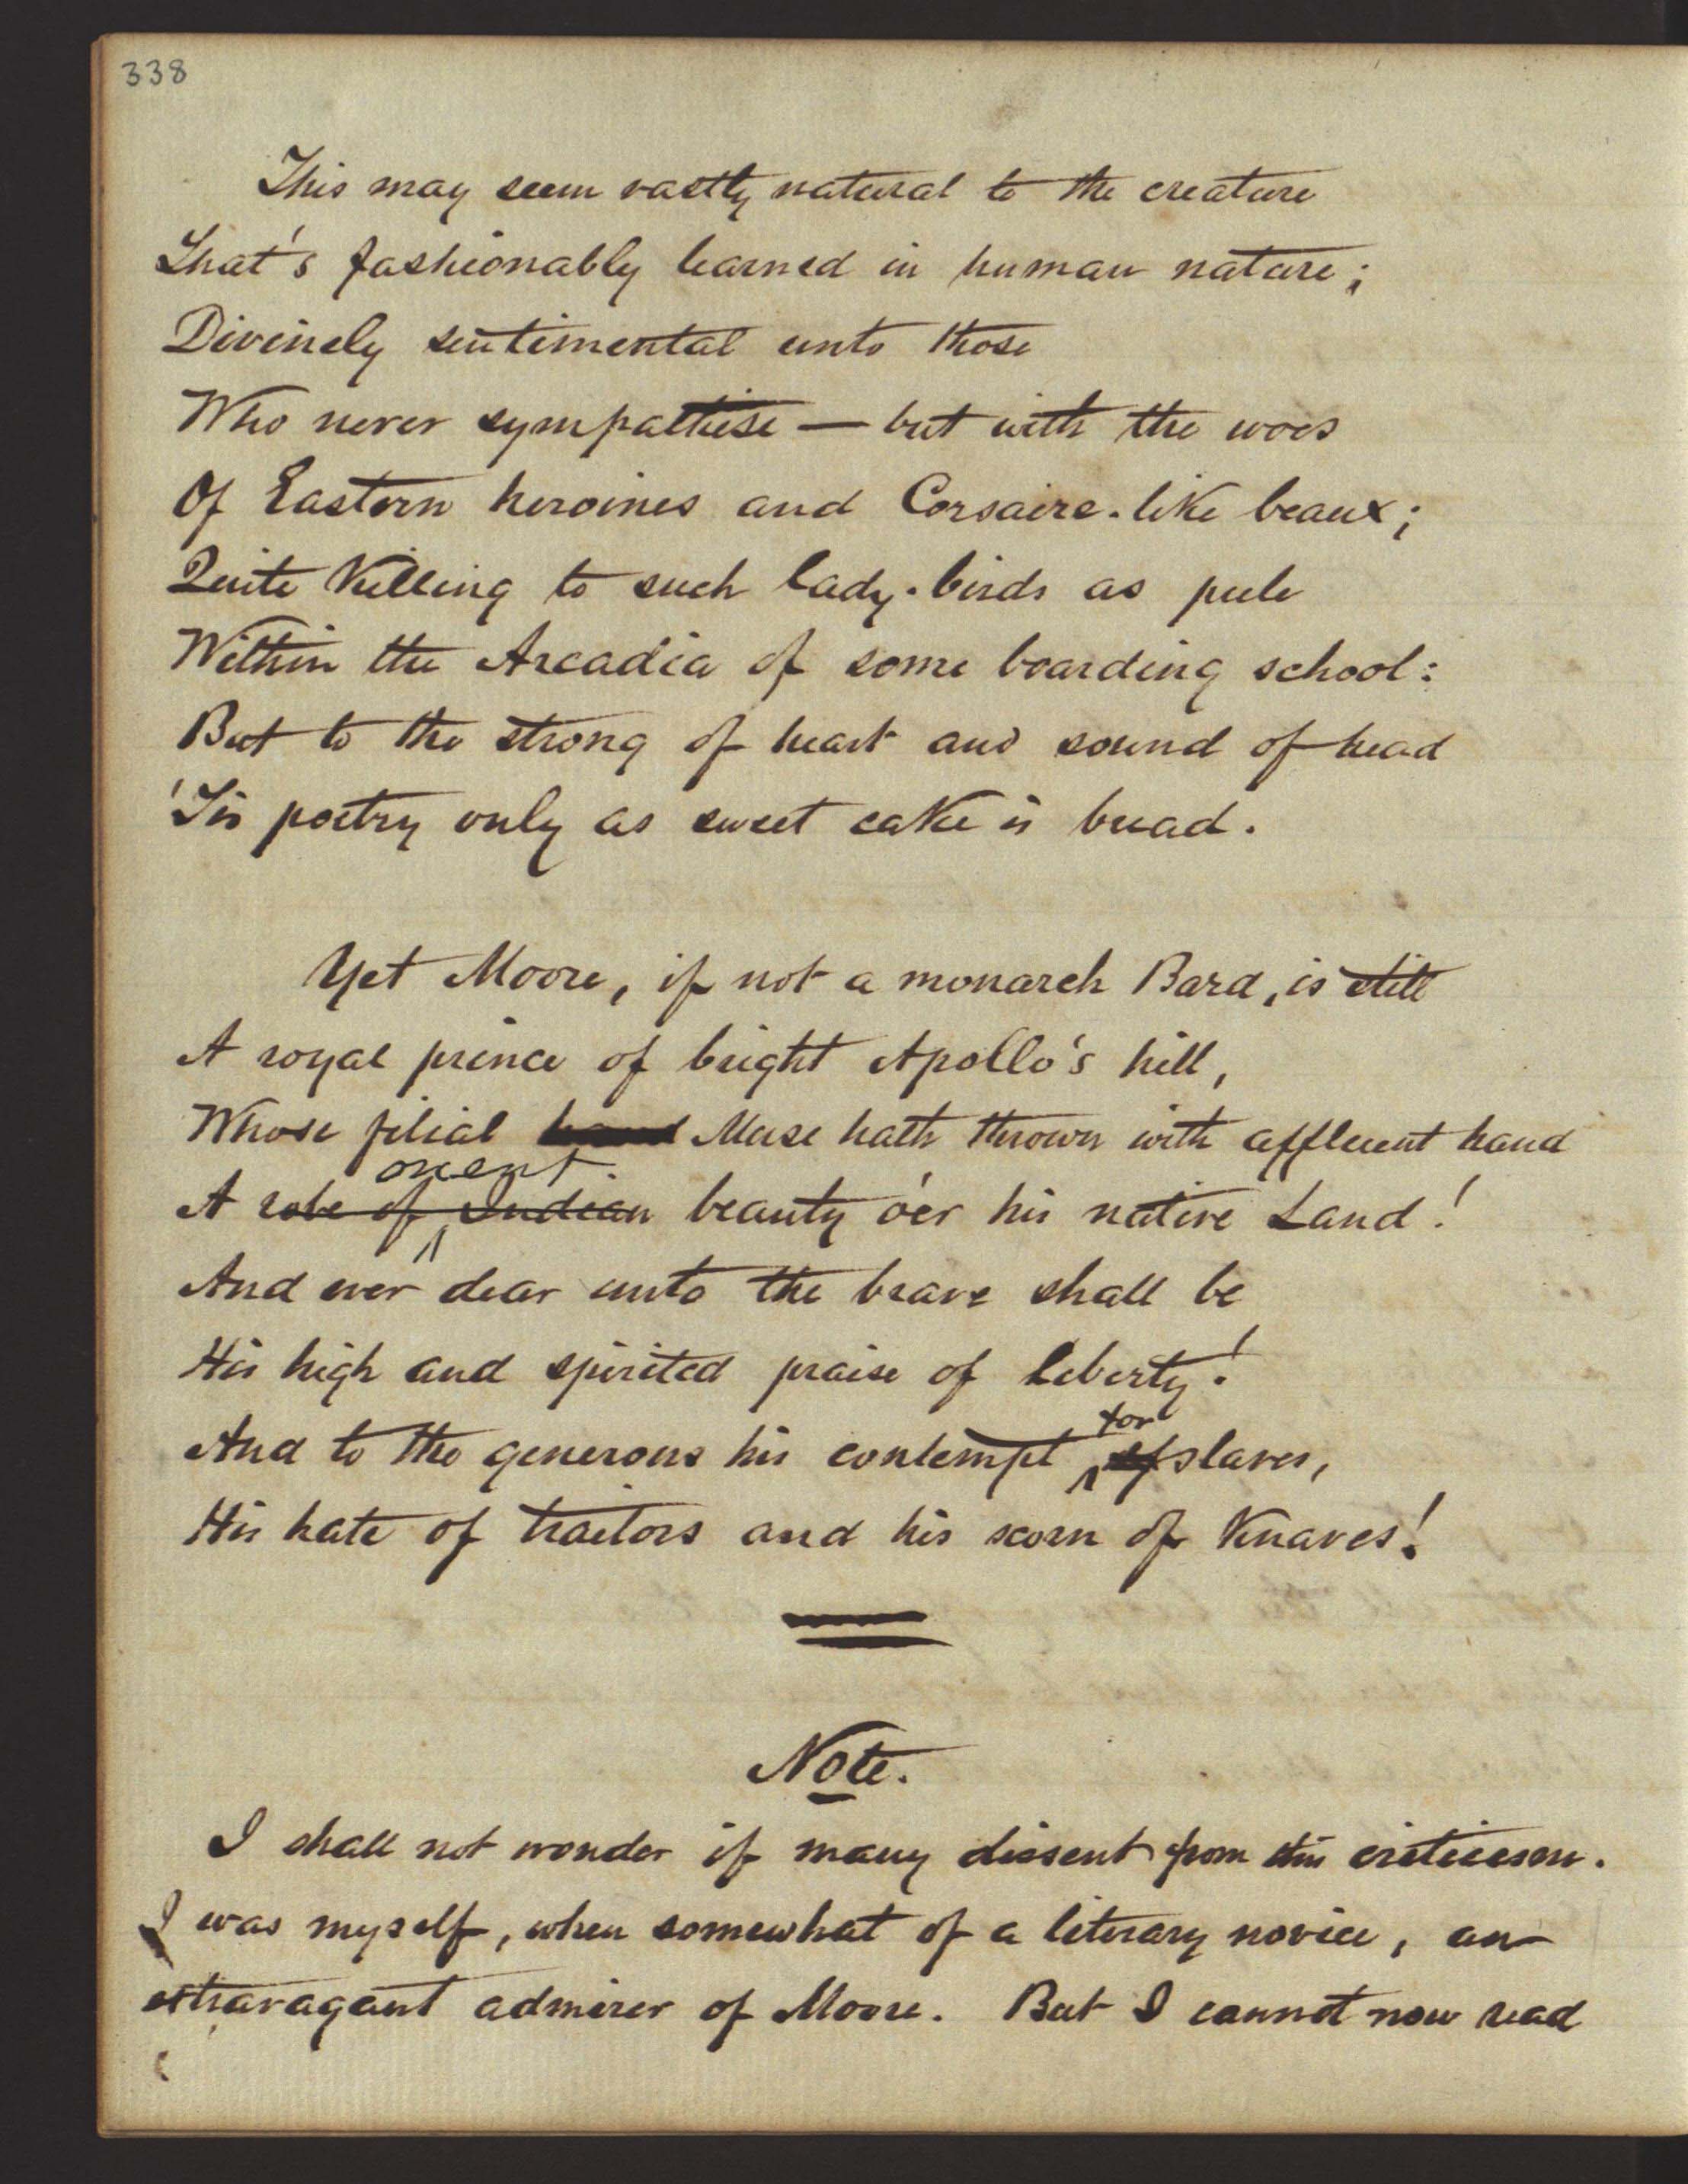 338
This may seem vastly natural to the creature
That's fashionably learned in human nature;
Divinely sentimental unto those
Who never sympathise — but with the woes
Of Eastern heroines and Corsaire-like beaux;
Quite killing to such lady-birds as pule
Within the Arcadia of some boarding school:
But to the strong of heart and sound of head
'Tis poetry only as sweet cake is bread.
Yet Moore, if not a monarch Bard, is still
A royal prince of bright Apollo's hill,
Whose filial hand Muse hath thrown with affluent hand
orient
A robe of Indian beauty o'er his native Land!
And ever dear unto the brave shall be
His high and spirited praise of liberty!
for
And to the generous his contempt of slaves,
His hate of traitors and his scorn of Knaves!
Note.
I shall not wonder if many dissent from this criticism.
I was myself, when somewhat of a literary novice, an
extravagant admirer of Moore. But I cannot now read